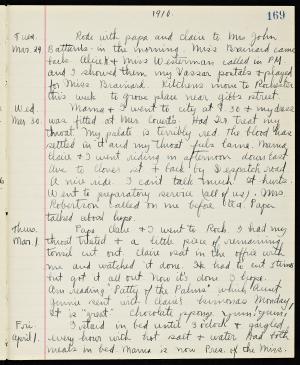 1910.
169
Tues. Rode with papa and Claire to Mrs John
Mar. 29. in the morning. Miss Brainard came
back. & Miss Westerman called in P.M
and I showed them my Vassar postals & played
for Miss Brainard. Kitchens move to Rochester
this week to Grove place near Gibbs street
Wed. Mama & I went to city at 8:30 & my dress
Mar. 30. was fitted at Mrs Courts. Had Dr treat my
throat. My palate is terribly red the blood has
settled in it and my throat feels lame. Mama,
Claire & I went riding in afternoon down East
Ave to Clover st & back by Despatch road
A nice ride. I can't talk much. It hurts.
Went to preparatory service (all of us). Mrs
Robertson called on me before tea. Paper
talked about hope.
Thurs. Papa Claire & I went to Roch. I had my
Mar. 31. throat treated & a little piece of remaining
tonsil cut out. Claire sat in the office with
me and watched it done. He had to cut 3 times
but got it all out. Now it's done I hope.
Am reading "Patty of the Palms" which Aunt
Jennie sent with Claire's Monday.
It is "great". Chocolate sponge yum! yum!
Fri. I staid in bed until 3 o'clock & gargled
April 1. every hour with hot salt & water. Had both
meals in bed. Mama is now Pres. of the Miss.